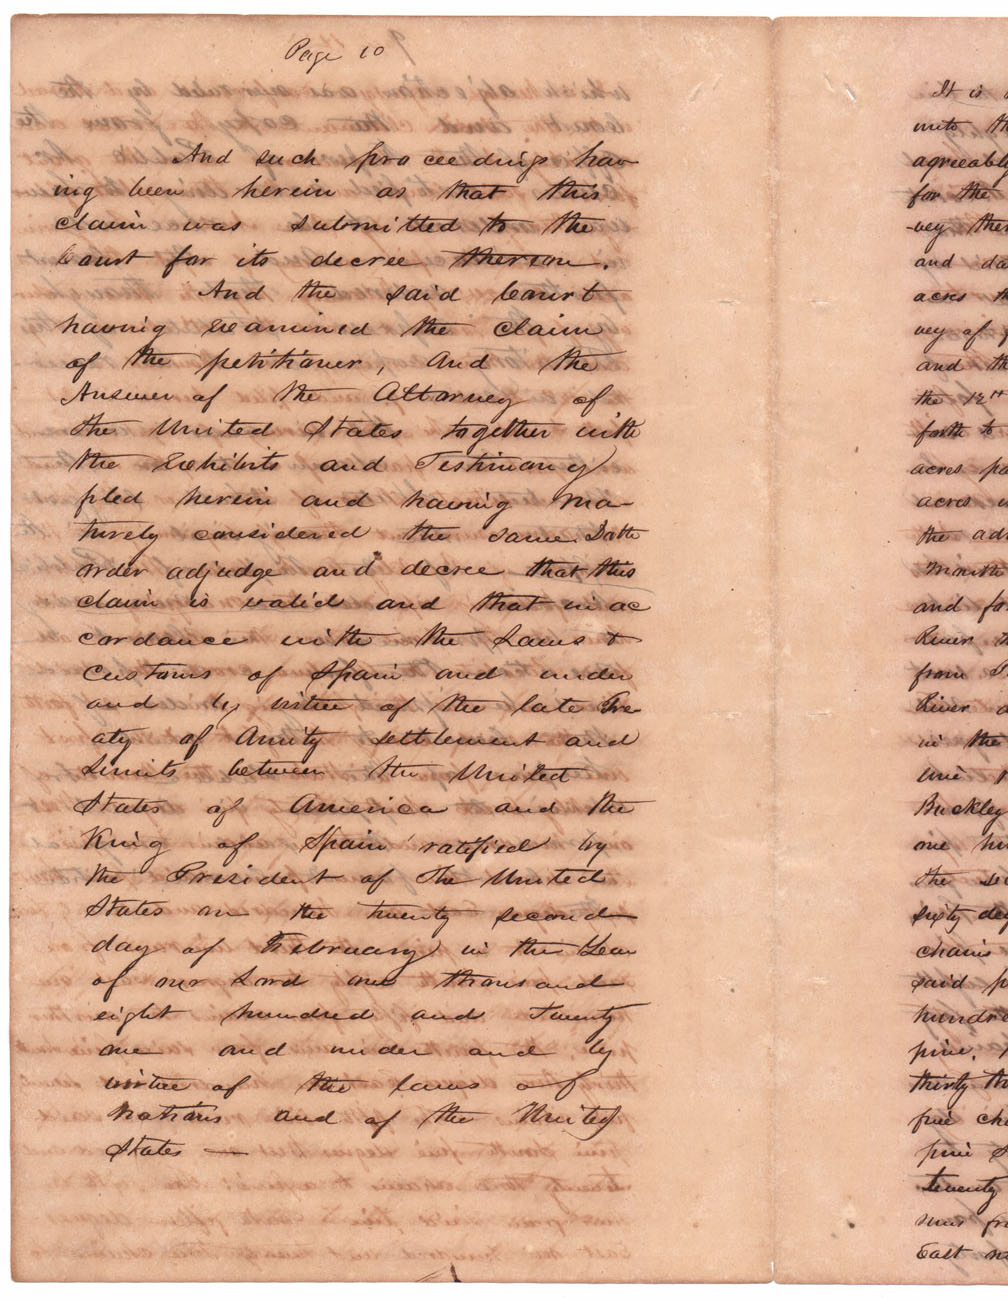 Page 10
And such proceedings hav-
ing been herein as that this
claim was submitted to the
Court for its decree thereon.
And the said Court
having examined the claim
of the petitioner, and the
Answer of the Attorney of
the United States together with
the Exhibits and Testimony
filed herein and having ma-
turely considered the same Doth
order adjudge and decree that this
claim is valid and that in ac
cordance with the Laws &
customs of Spain and under
and by virtue of the late Tre-
aty of Amity settlement and
Limits between the United
States of America and the
King of Spain ratified by
the President of the United
States on the twenty second
day of February in the Year
of our Lord one thousand
eight hundred and Twenty
one and under and by
virtue of the laws of
Nations and of the United
States —
It is
unto
agreeably
for the
vey
and
acres
vey of
and
the 12th
forth to
acres
acres
the
month
and
River
from
River
in the
line
Buckley
one
the
sixty
chains
said
hundre
pine.
thirty
five
pine
twenty
East